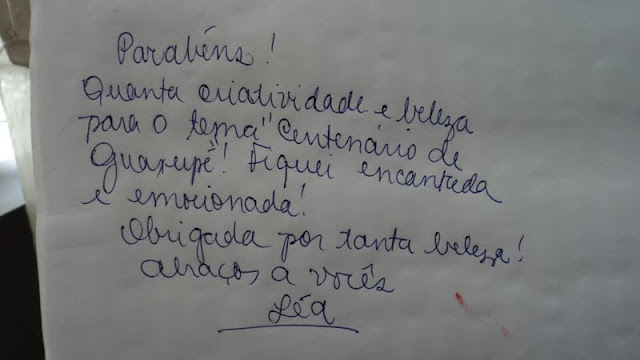 Parabéns!
Quanta criatividade e beleza
para o tema "Centenário de
Guaxupé! Fiquei encantada
e emocionada!
Obrigada por tanta beleza!
Abraços a vocês
Léa